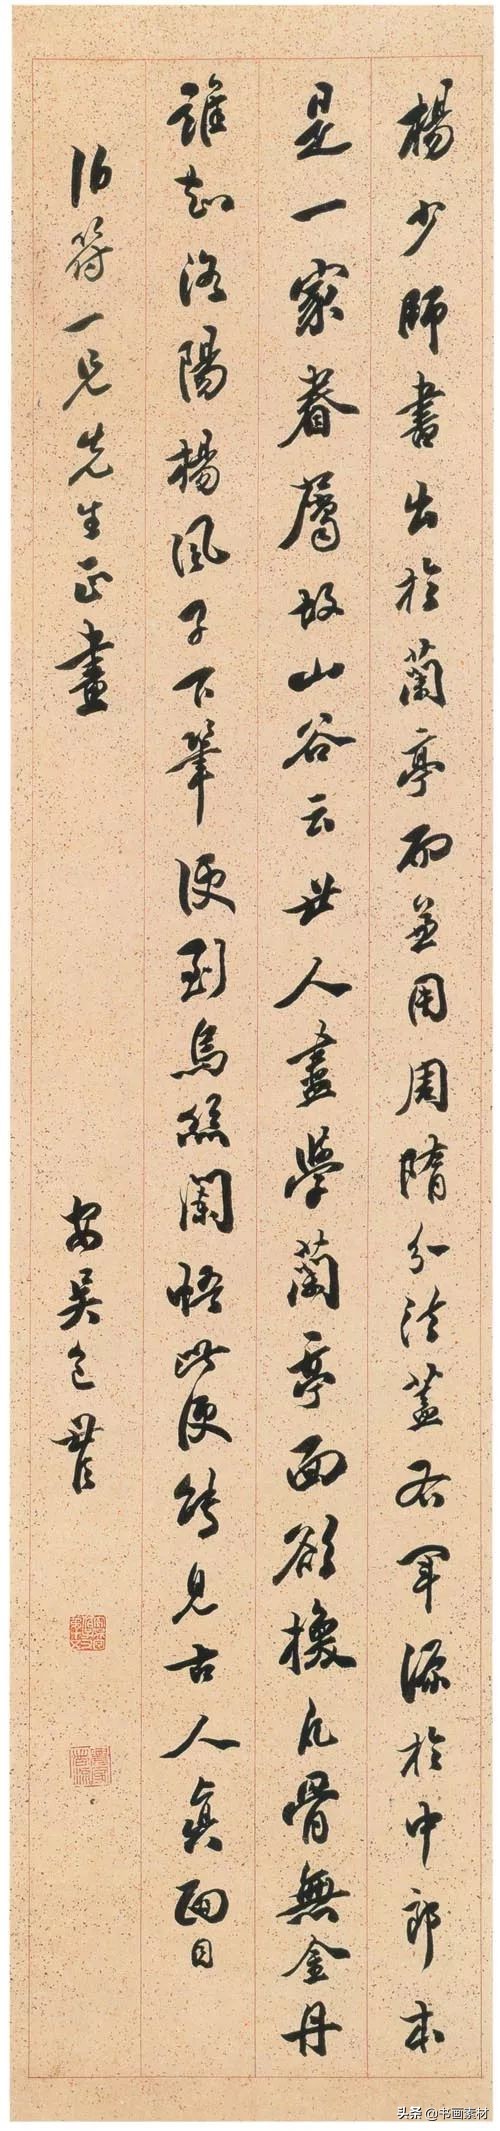 楊少師書出於蘭亭而兼用周隋分法蓋右軍源於中郎本
是一家眷屬故山谷云世人盡學蘭亭面欲換凡骨無金丹
誰知洛陽楊風子下筆便到烏絲闌悟此便能見古人真面目
伯符一兄先生正畫
安吳包世臣
头条@书画素材